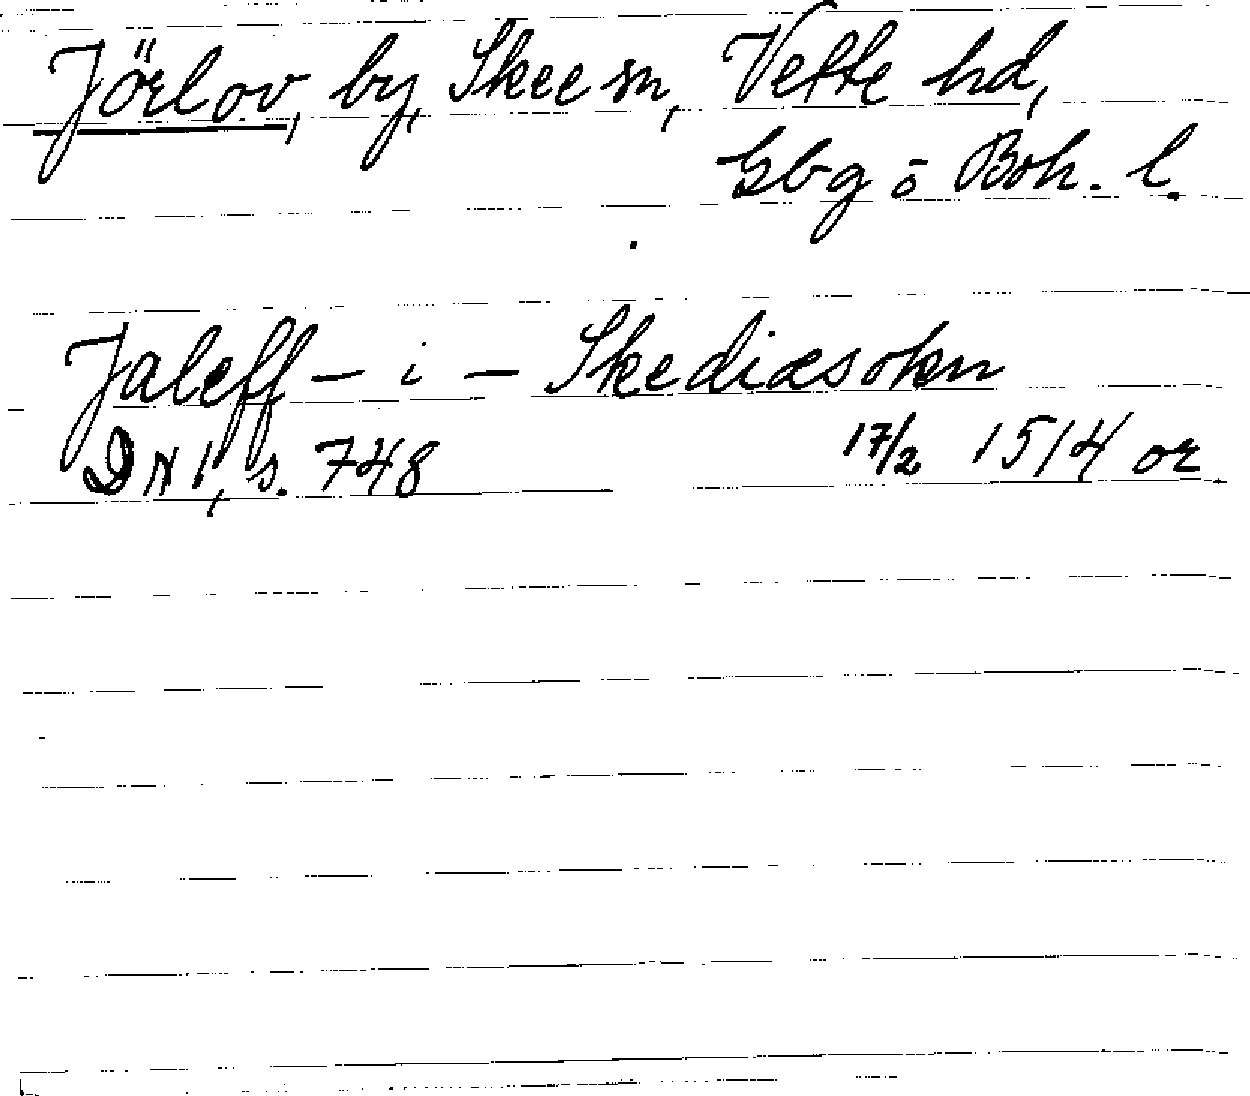 Jörlov, by, Skee sn, Vette hd,
Gbg o Boh. l.
Jaleff - i - Skediæsokn
DN 1, s. 748 17/2 1514 or.